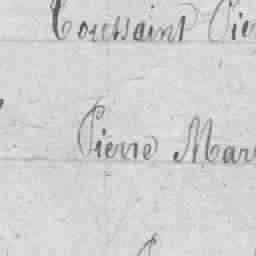 Toussaint Pie
Pierre Mar